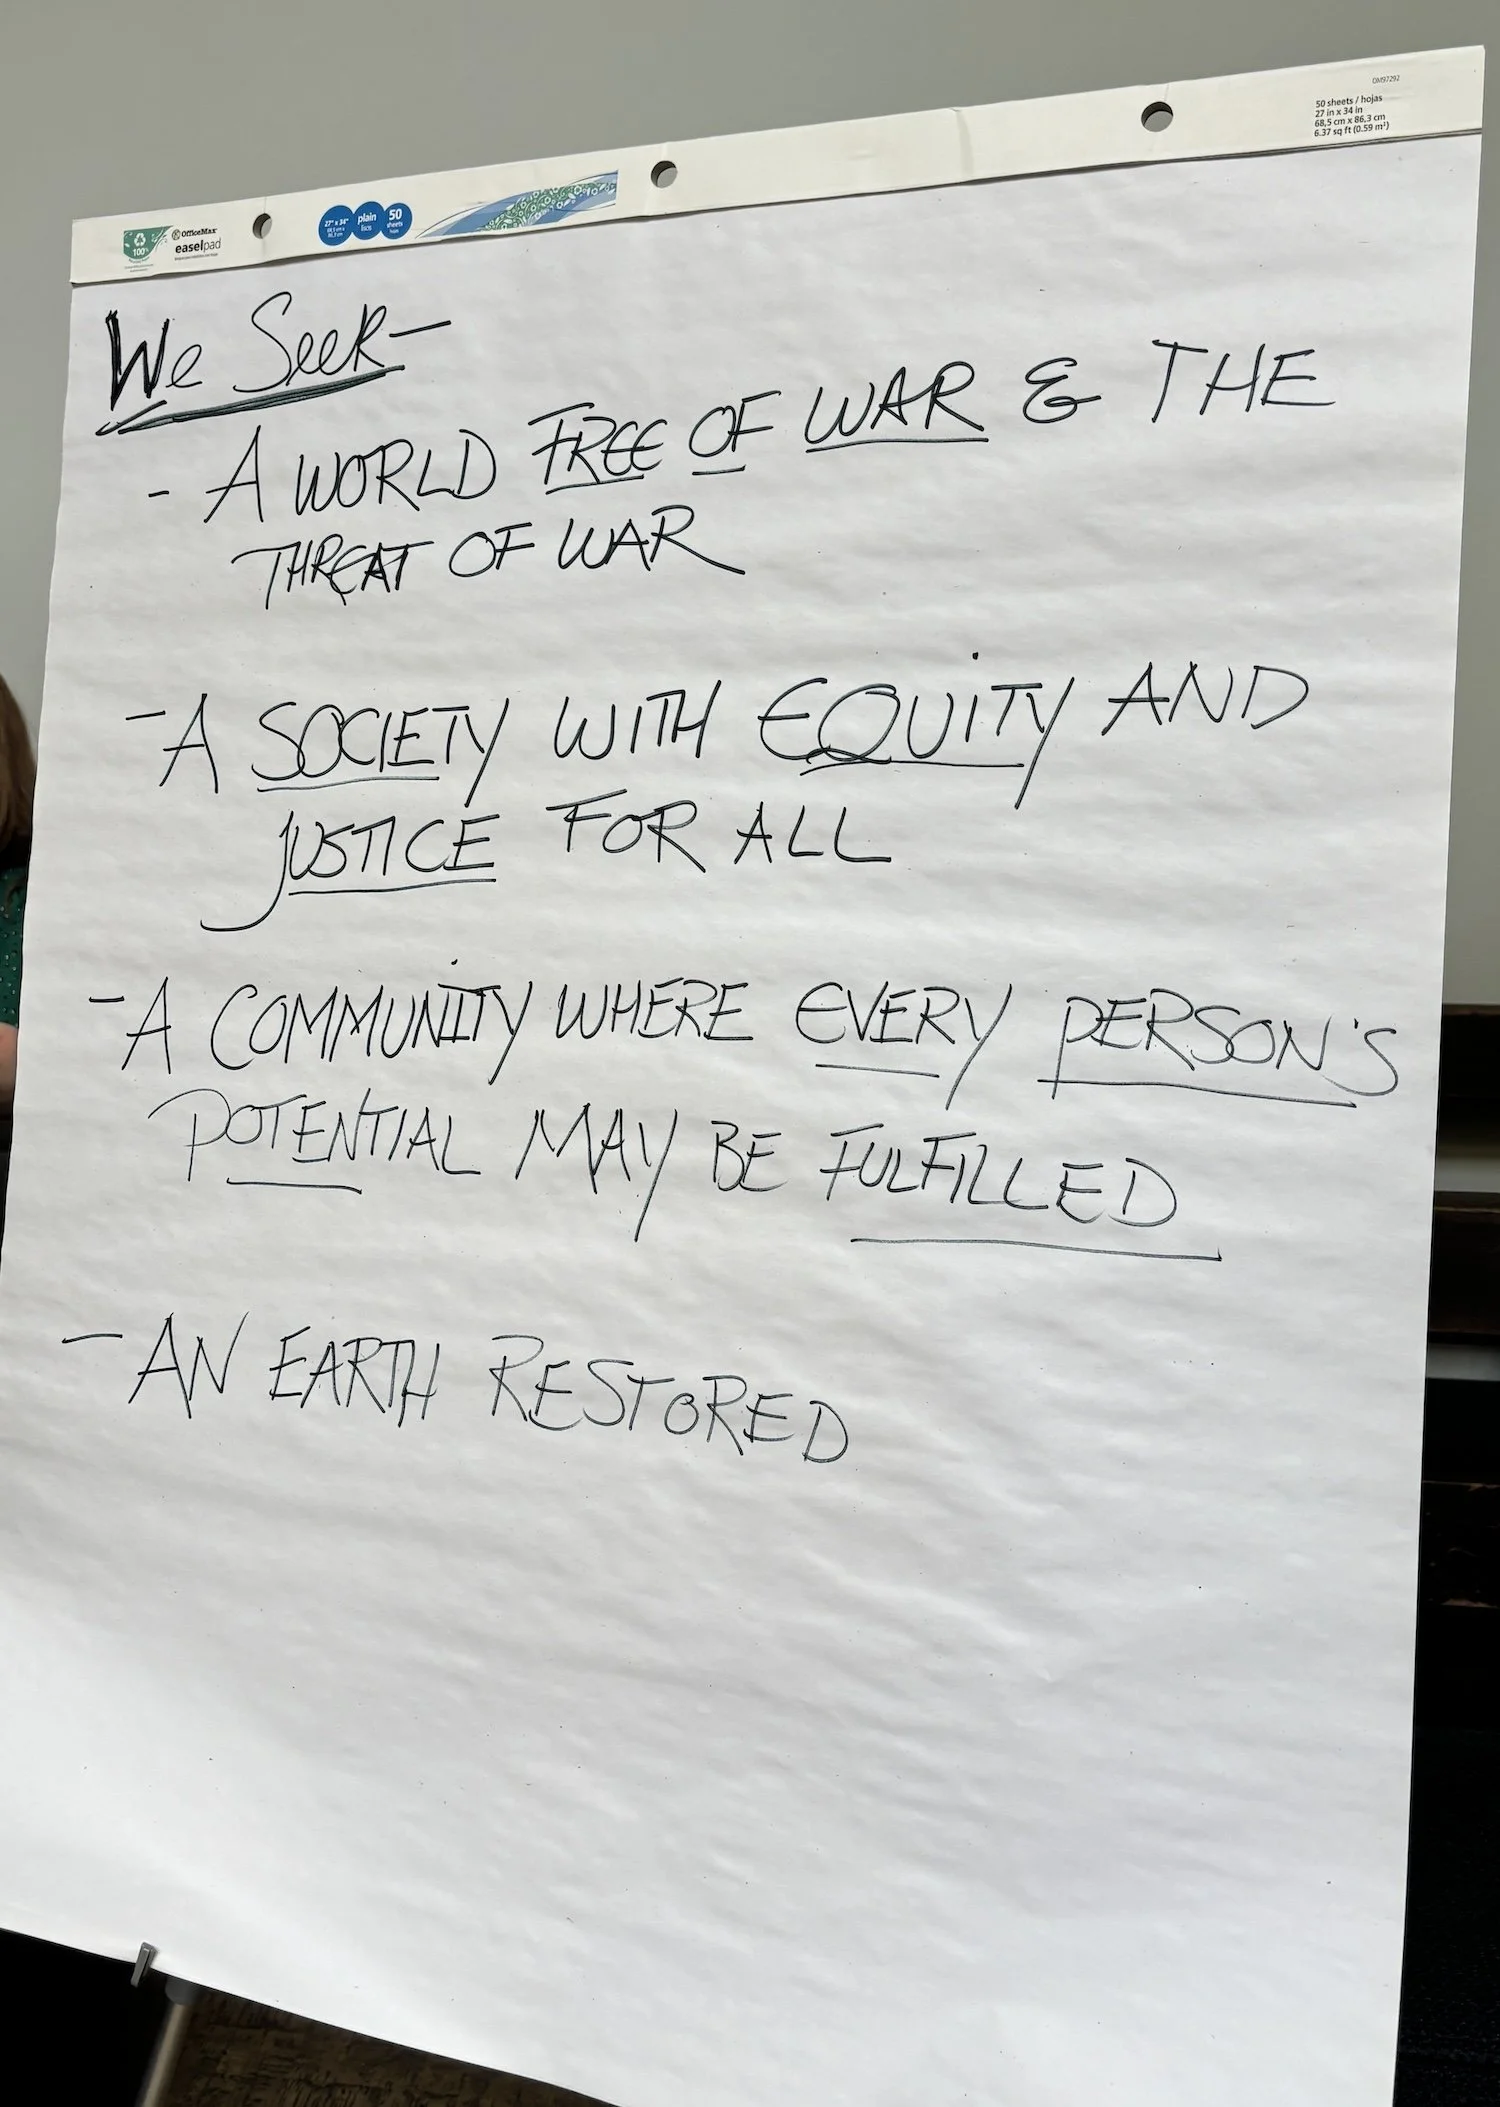 DM97292
50 sheets / hojas
27 in x 34 in
68,5 cm x 86,3 cm
6.37 sq ft (0.59 m²)
100%
OfficeMax
easelpad
27" x 34"
plain
lisos
50
sheets
We Seek—
- A WORLD FREE OF WAR & THE
THREAT OF WAR
- A SOCIETY WITH EQUITY AND
JUSTICE FOR ALL
- A COMMUNITY WHERE EVERY PERSON'S
POTENTIAL MAY BE FULFILLED
- AN EARTH RESTORED